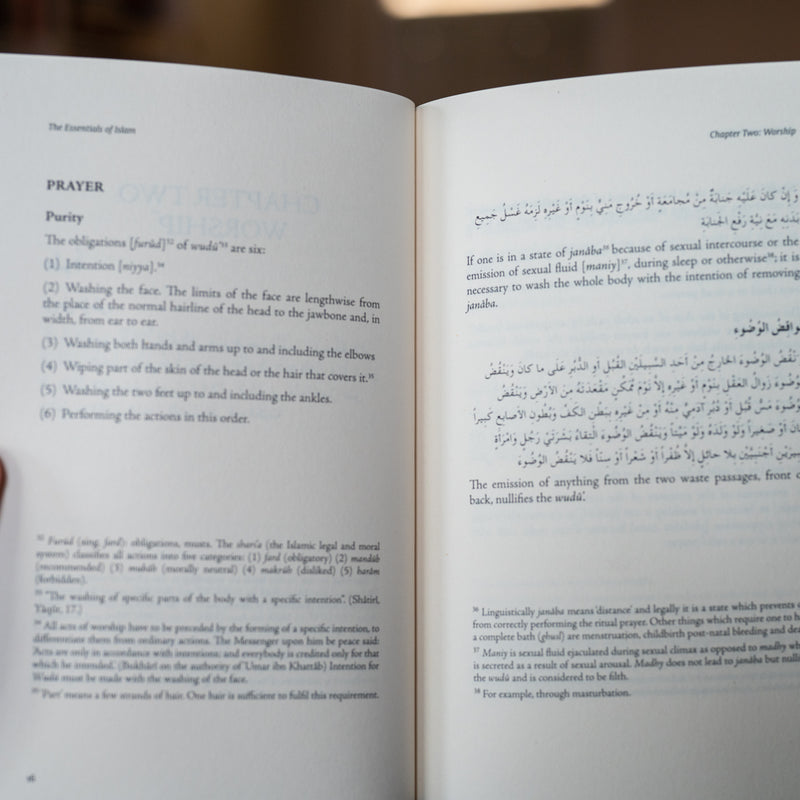 The Essentials of Islam
PRAYER
Purity
The obligations [furūḍ]³² of wudū’³³ are six:
(1) Intention [niyya].³⁴
(2) Washing the face. The limits of the face are lengthwise from
the place of the normal hairline of the head to the jawbone and, in
width, from ear to ear.
(3) Washing both hands and arms up to and including the elbows
(4) Wiping part of the skin of the head or the hair that covers it.³⁵
(5) Washing the two feet up to and including the ankles.
(6) Performing the actions in this order.
³² Furūḍ (sing. farḍ): obligations, musts. The sharī‘a (the Islamic legal and moral
system) classifies all actions into five categories: (1) farḍ (obligatory) (2) mandūb
(recommended) (3) mubāḥ (morally neutral) (4) makrūh (disliked) (5) ḥarām
(forbidden).
³³ "The washing of specific parts of the body with a specific intention". (Shāṭirī,
Yāqūt, 17.)
³⁴ All acts of worship have to be preceded by the forming of a specific intention, to
differentiate them from ordinary actions. The Messenger upon him be peace said:
'Acts are only in accordance with intentions, and everybody is credited only for that
which he intended.' (Bukhārī on the authority of ‘Umar ibn Khaṭṭāb) Intention for
Wudū must be made with the washing of the face.
³⁵ 'Part' means a few strands of hair. One hair is sufficient to fulfil this requirement.
Chapter Two: Worship
وَإِنْ كَانَ عَلَيْهِ جَنَابَةٌ مِنْ مُجَامَعَةٍ أَوْ خُرُوجِ مَنِيٍّ بِنَوْمٍ أَوْ غَيْرِهِ لَزِمَهُ غَسْلُ جَمِيعِ
بَدَنِهِ مَعَ نِيَّةِ رَفْعِ الْجَنَابَةِ
If one is in a state of janāba³⁶ because of sexual intercourse or the
emission of sexual fluid [maniy]³⁷, during sleep or otherwise³⁸; it is
necessary to wash the whole body with the intention of removing
janāba.
نَوَاقِضُ الْوُضُوءِ
تَنْقُضُ الْوُضُوءَ الْخَارِجُ مِنْ أَحَدِ السَّبِيلَيْنِ الْقُبُلِ أَوِ الدُّبُرِ عَلَى مَا كَانَ وَيَنْقُضُ
الْوُضُوءَ زَوَالُ الْعَقْلِ بِنَوْمٍ أَوْ غَيْرِهِ إِلَّا نَوْمَ مُمَكِّنٍ مَقْعَدَتَهُ مِنَ الْأَرْضِ وَيَنْقُضُ
الْوُضُوءَ مَسُّ قُبُلٍ أَوْ دُبُرِ آدَمِيٍّ مِنْهُ أَوْ مِنْ غَيْرِهِ بِبَطْنِ الْكَفِّ وَبُطُونِ الْأَصَابِعِ كَبِيرًا
كَانَ أَوْ صَغِيرًا وَلَوْ وَلَدَهُ وَلَوْ مَيِّتًا وَيَنْقُضُ الْوُضُوءَ الْتِقَاءُ بَشَرَتَيْ رَجُلٍ وَامْرَأَةٍ
كَبِيرَيْنِ أَجْنَبِيَّيْنِ بِلَا حَائِلٍ إِلَّا ظُفْرًا أَوْ شَعْرًا أَوْ سِنًّا فَلَا يَنْقُضُ الْوُضُوءَ
The emission of anything from the two waste passages, front
back, nullifies the wudū’.
³⁶ Linguistically janāba means 'distance' and legally it is a state which prevents
from correctly performing the ritual prayer. Other things which require one to
a complete bath (ghusl) are menstruation, childbirth post-natal bleeding and
³⁷ Maniy is sexual fluid ejaculated during sexual climax as opposed to madhy
is secreted as a result of sexual arousal. Madhy does not lead to janāba but
the wudū and is considered to be filth.
³⁸ For example, through masturbation.